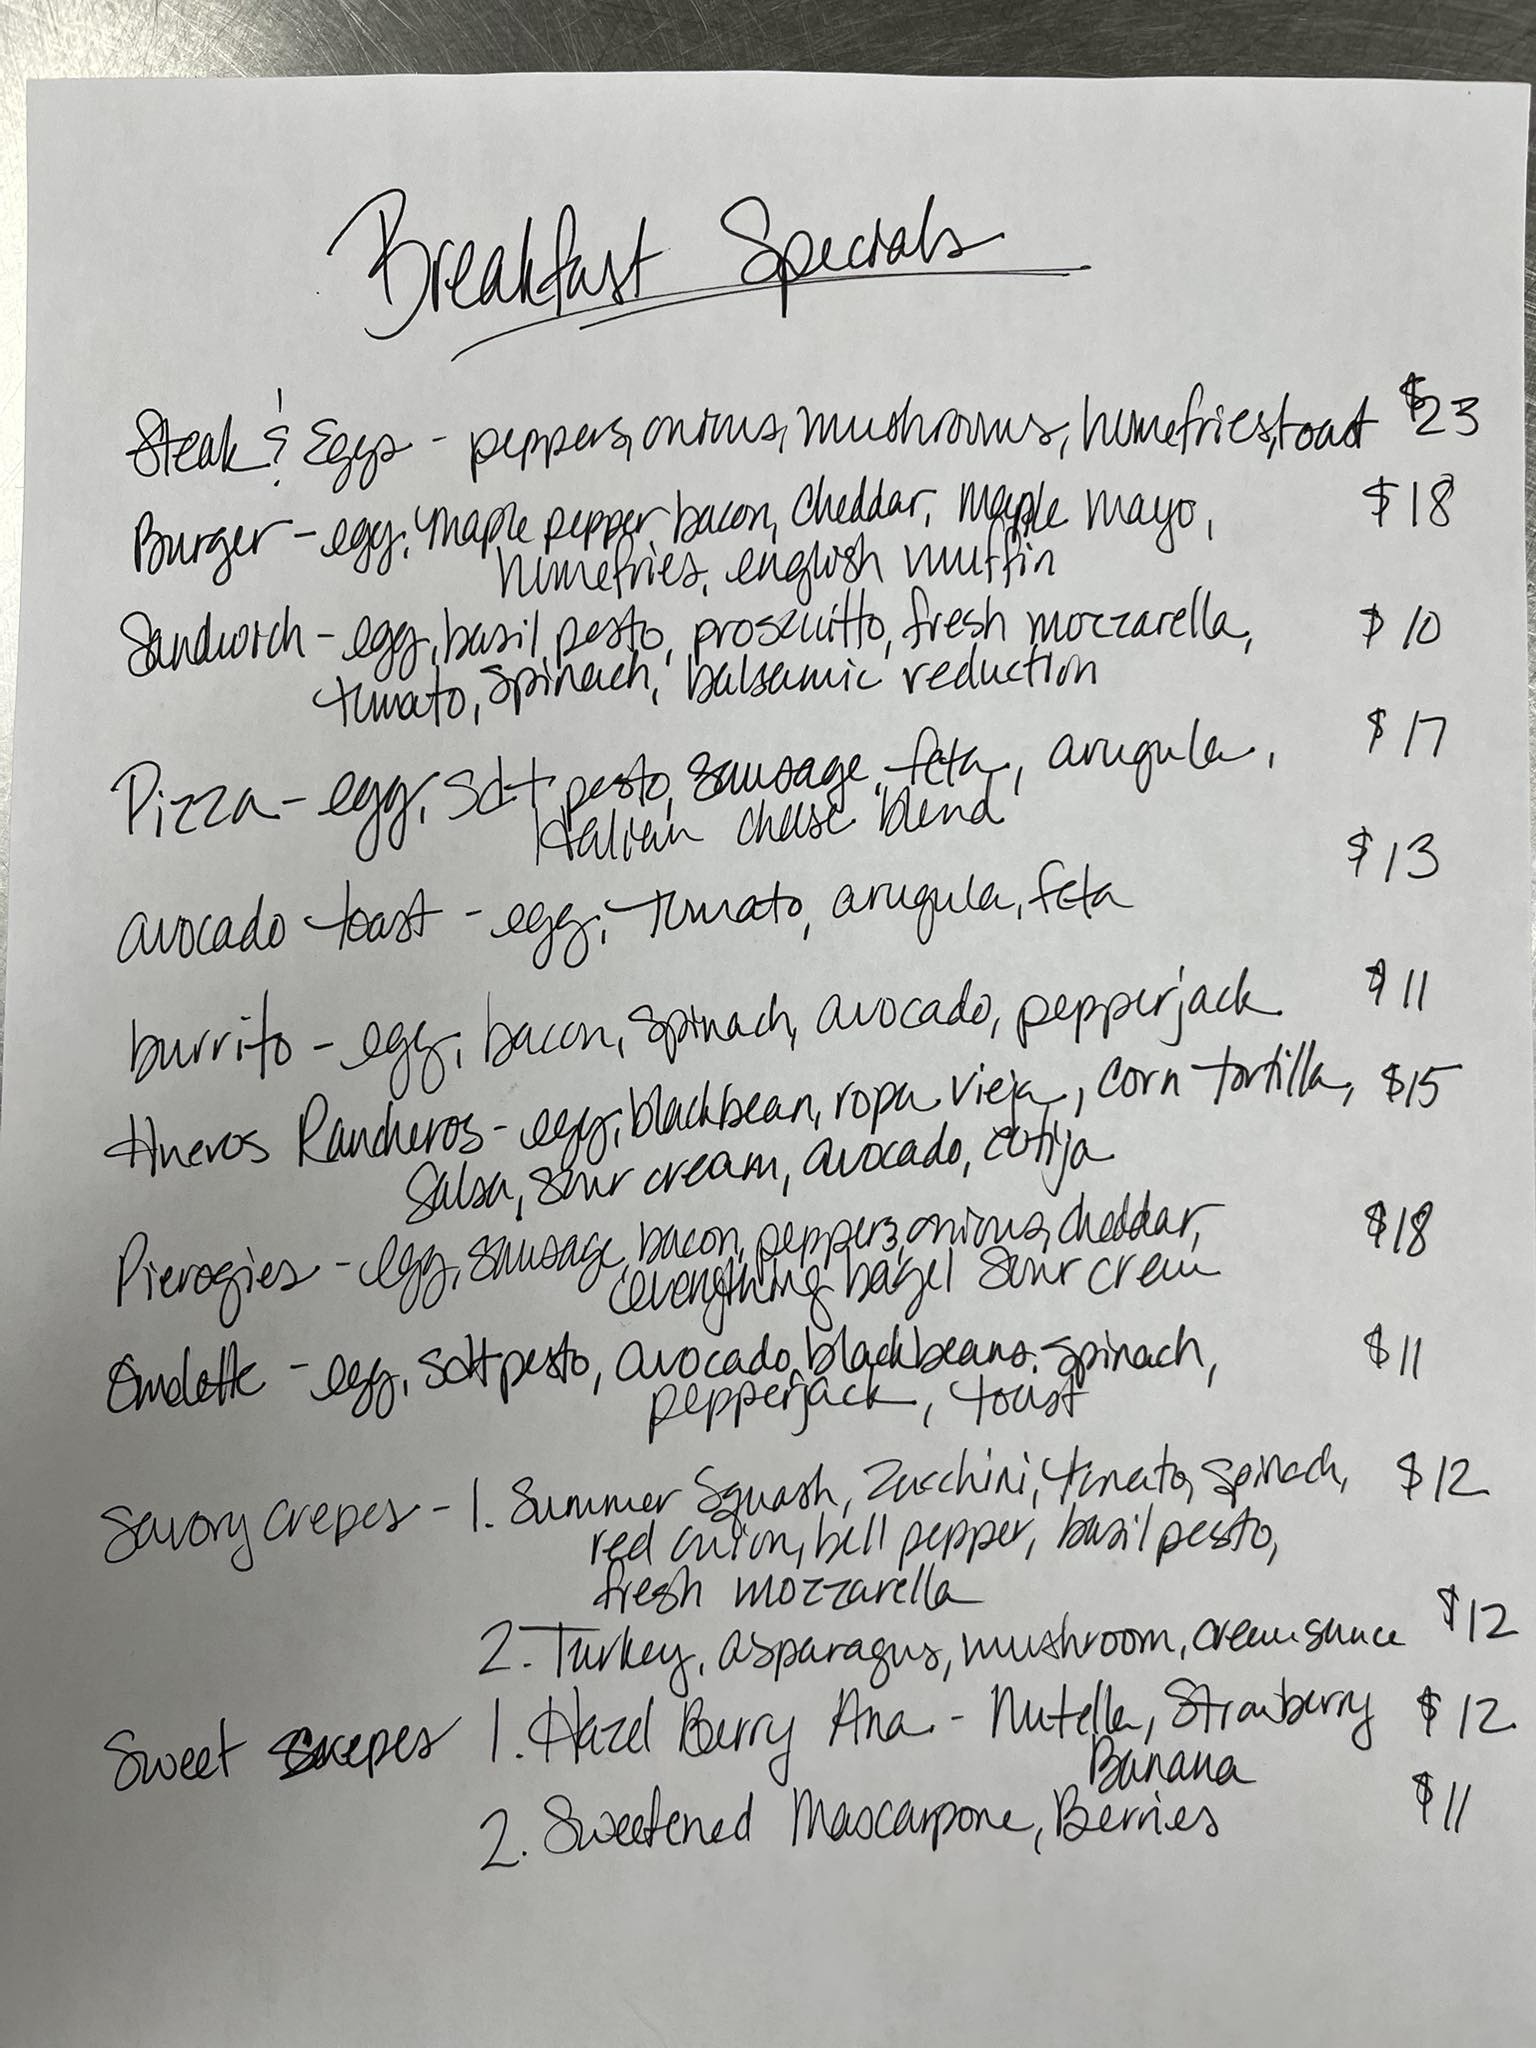 Breakfast Specials
Steak & Eggs - peppers, onions, mushrooms, homefries, toast $23
Burger - egg, maple pepper bacon, cheddar, maple mayo, $18
homefries, english muffin
Sandwich - egg, basil pesto, proscuitto, fresh mozzarella, $10
tomato, spinach, balsamic reduction
Pizza - egg, sdt pesto, sausage, feta, arugula, $17
Italian cheese blend
avocado toast - egg, tomato, arugula, feta $13
burrito - egg, bacon, spinach, avocado, pepperjack $11
Hueros Rancheros - egg, blackbean, ropa vieja, corn tortilla, $15
salsa, sour cream, avocado, cotija
Pierogies - egg, sausage, bacon, peppers, onions, cheddar, $18
everything bagel sour cream
Omelette - egg, sdt pesto, avocado, blackbeans, spinach, $11
pepperjack, toast
Savory crepes - 1. Summer Squash, Zucchini, tomato, spinach, $12
red onion, bell pepper, basil pesto,
fresh mozzarella
2. Turkey, asparagus, mushroom, cream sauce $12
Sweet crepes 1. Hazel Berry Ana - Nutella, Strawberry $12
Banana
2. Sweetened Mascarpone, Berries $11